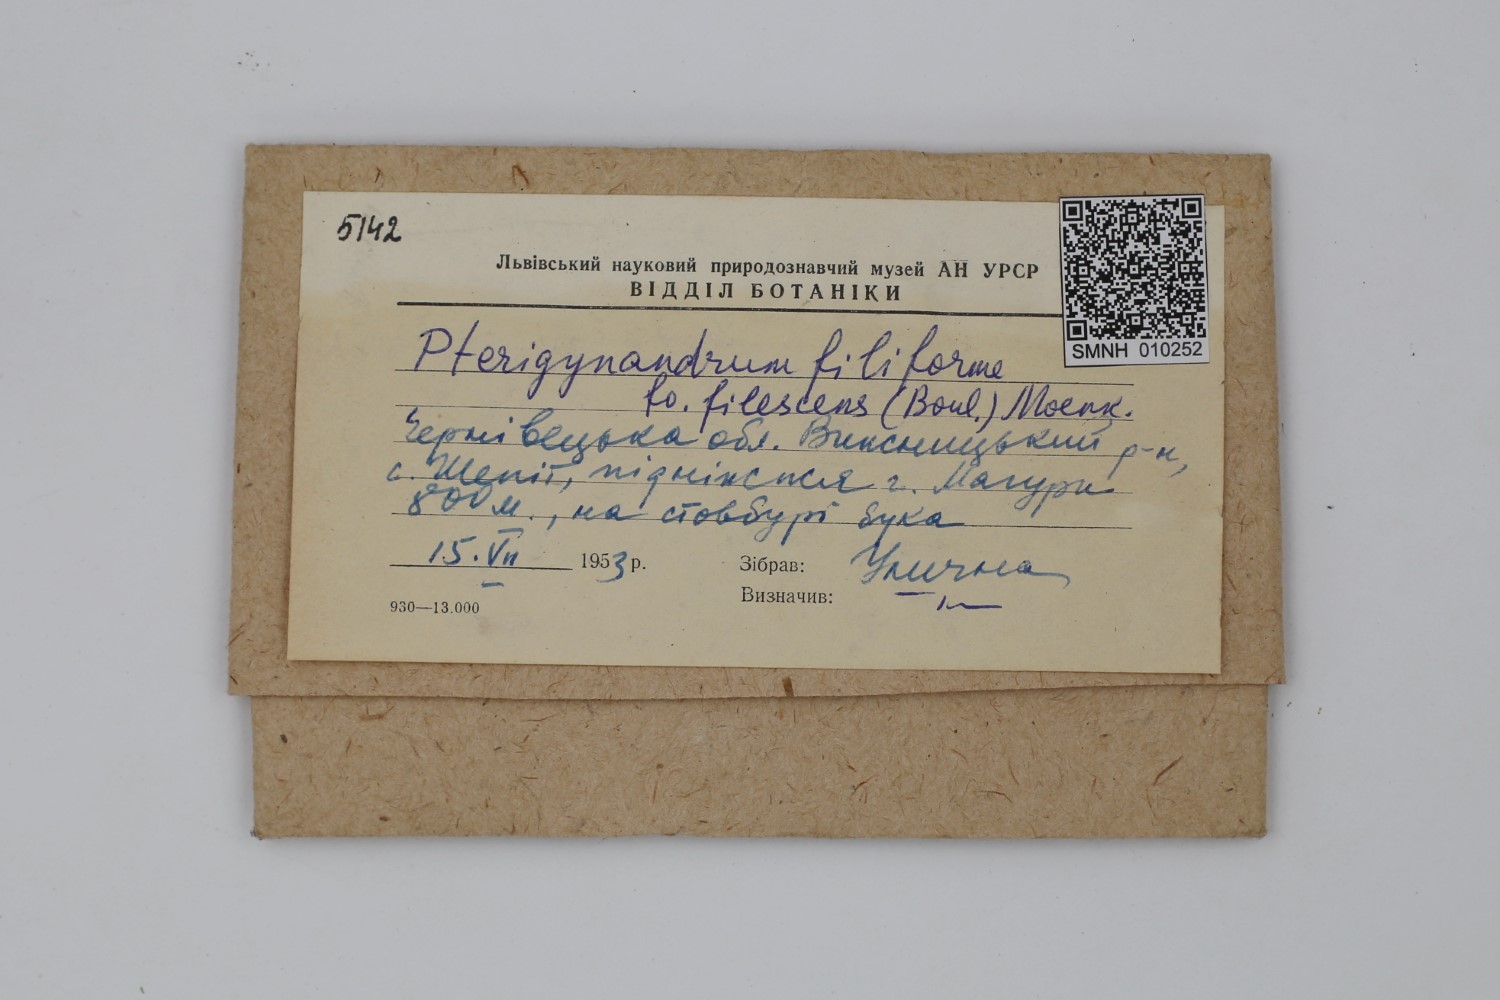 5142
Львівський науковий природознавчий музей АН УРСР
ВІДДІЛ БОТАНІКИ
SMNH 010252
Pterigynandrum filiforme
fo. filescens (Boul.) Moenk.
Чернівецька обл. Вижницький р-н,
с. Шепіт, підніжжя г. Магури
800 м., на стовбурі бука
15.VII 1953 р.
Зібрав: Улична
Визначив: —"—
930—13.000